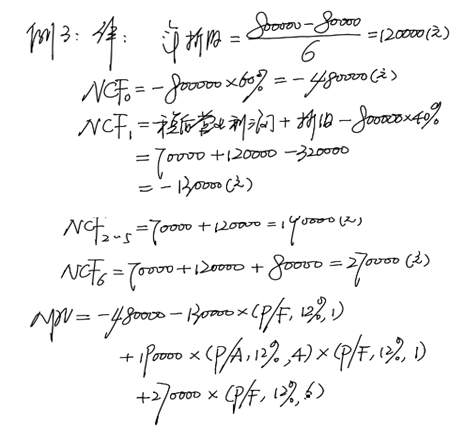 例3:解: 年折旧 = (800000-80000)/6 = 120000(元)
NCF₀ = -800000×60% = -480000(元)
NCF₁ = 税后营业利润 + 折旧 - 800000×40%
= 70000 + 120000 - 320000
= -130000(元)
NCF₂~₅ = 70000 + 120000 = 190000(元)
NCF₆ = 70000 + 120000 + 80000 = 270000(元)
NPV = -480000 - 130000×(P/F, 12%, 1)
+ 190000×(P/A, 12%, 4)×(P/F, 12%, 1)
+ 270000×(P/F, 12%, 6)